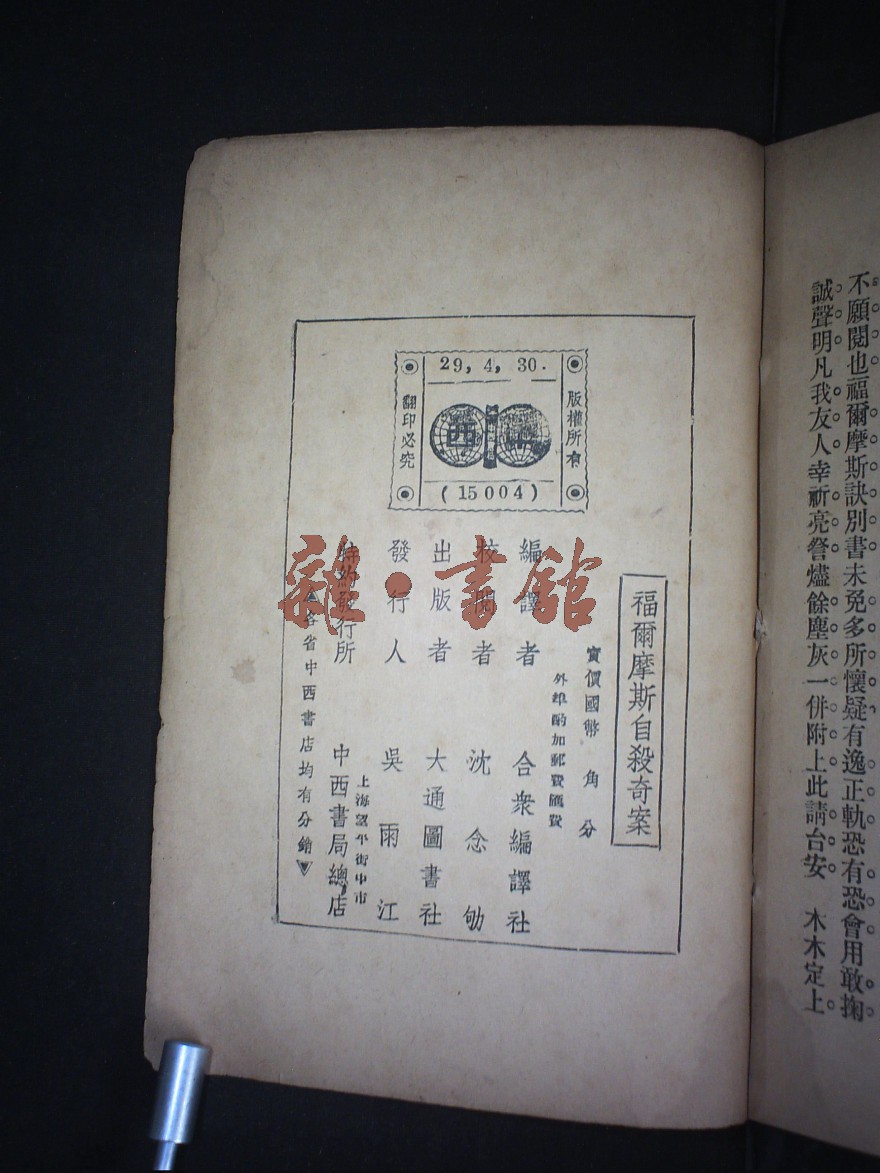 不願閱也福爾摩斯訣別書未免多所懷疑有逸正軌恐有恐會用敢掬
誠聲明凡我友人幸祈亮詧燼餘塵灰一併附上此請台安 木木定上
29, 4, 30.
版權所有
翻印必究
西
(15004)
福爾摩斯自殺奇案
實價國幣 角 分
外埠酌加郵費匯費
編譯者 合衆編譯社
校閱者 沈念劬
出版者 大通圖書社
發行人 吳雨江
上海望平街中市
特約發行所 中西書局總店
▲各省中西書店均有分銷▼
雜·書館